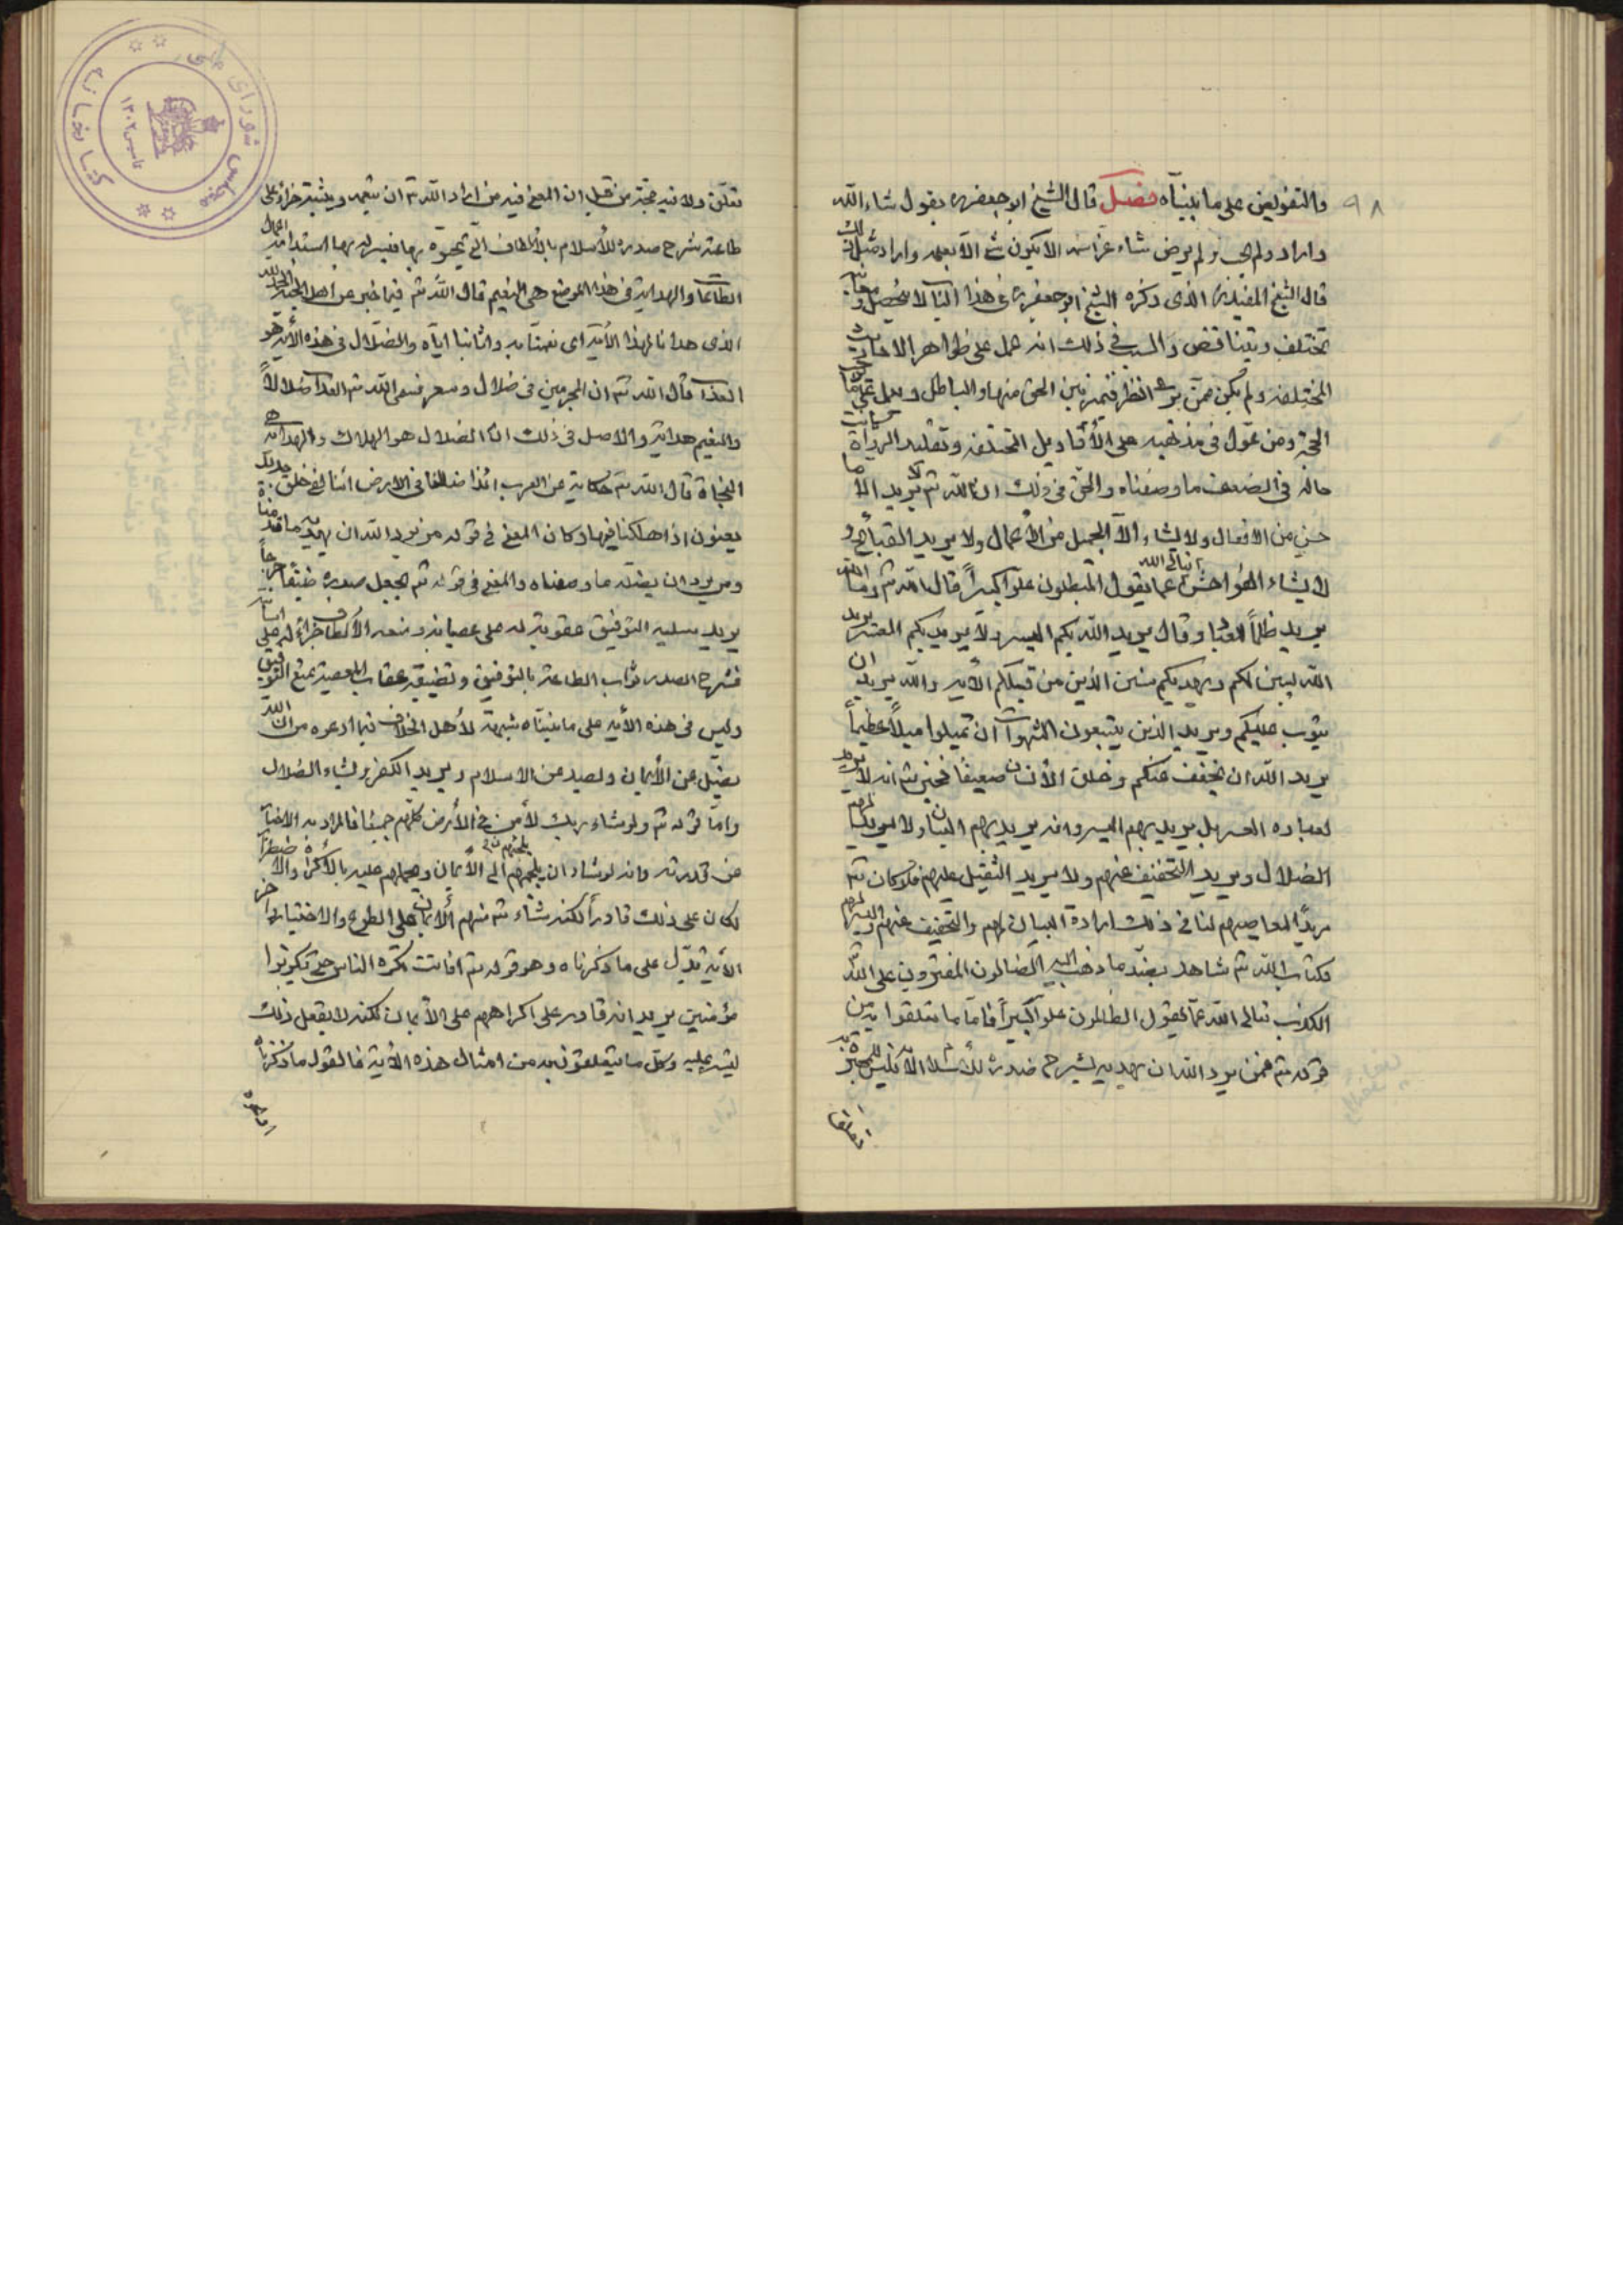 ۹۸
والتفويض على ما بيناه فصل قال الشيخ ابو جعفر ره نقول شاء الله
واراد ولم يحب ولم يرض شاء عز اسمه الا يكون شئ الا بعلمه واراد مثل ذلك
قال الشيخ المفيد ره الذى ذكره الشيخ ابو جعفر ره فى هذا الباب لا يتحصل ومعانيه
تختلف وتتناقض والسبب فى ذلك انه عمل على ظواهر الاحاديث
المختلفة ولم يكن ممن يرى النظر فيميز بين الحق منها والباطل ويعمل على ما يوجب
الحجة ومن عول فى مذهبه على الأقاويل المختلفة وتقليد الرواة كانت
حاله فى الضعف ما وصفناه والحق فى ذلك ان الله تم لا يريد الا ما
حسن من الافعال ولا يشاء الا الجميل من الأعمال ولا يريد القبائح و
لا يشاء الفواحش تعالى الله عما يقول المبطلون علوا كبيراً قال الله تم وما الله
يريد ظلماً للعباد وقال يريد الله بكم اليسر ولا يريد بكم العسر يريد
الله ليبين لكم ويهديكم سنن الذين من قبلكم الأية والله يريد ان
يتوب عليكم ويريد الذين يتبعون الشهوات ان تميلوا ميلاً عظيماً
يريد الله ان يخفف عنكم وخلق الأنسان ضعيفاً فخبر تم انه لا يريد
لعباده العسر بل يريد بهم اليسر وانه يريد بهم البيان ولا يريد لهم
الضلال ويريد التخفيف عنهم ولا يريد الثقيل عليهم فلو كان تم
مريداً لمعاصيهم لنافى ذلك ارادة البيان لهم والتخفيف عنهم واليسر لهم
فكتاب الله تم شاهد بضد ما ذهب اليه الضالون المفترون على الله
الكذب تعالى الله عما يقول الظالمون علواً كبيراً فاما ما تعلقوا به من
قوله تم فمن يرد الله ان يهديه يشرح صدره للأسلام الأية فليس للمجبرة به
تعلق ولا فيه حجة من قبل ان المعنى فيه من اراد الله تم ان ينعمه ويثيبه جزاء على
طاعته شرح صدره للأسلام بالألطاف التى يحبوه بها فييسر له بها استدامة اعمال
الطاعات والهداية فى هذا الموضع هى النعيم قال الله تم فيما خبر عن اهل الجنة الحمد لله
الذى هدانا لهذا الأية اى نعمنا به واثابنا اياه والضلال فى هذه الأية هو
العذاب قال الله تم ان المجرمين فى ضلال وسعر فسمى الله تم العذاب ضلالاً
والنعيم هداية والاصل فى ذلك ان الضلال هو الهلاك والهداية هى
النجاة قال الله تم حكاية عن العرب ائذا ضللنا فى الارض ائنا لفى خلق جديد
يعنون اذا هلكنا فيها وكان المعنى فى قوله فمن يرد الله ان يهديه ما قدمناه
ومن يرد ان يضله ما وصفناه والمعنى فى قوله تم يجعل صدره ضيقاً حرجاً
يريد سلبه التوفيق عقوبة له على عصيانه ومنعه الألطاف جزاءً له على اساءته
فشرح الصدر ثواب الطاعة بالتوفيق وتضييقه عقاب المعصية بمنع التوفيق
وليس فى هذه الأية على ما بيناه شبهة لأهل الخلاف فيما ادعوه من ان الله
يضل عن الأيمان ويصد عن الاسلام ويريد الكفر ويشاء الضلال
واما قوله تم ولو شاء ربك لأمن من فى الأرض كلهم جميعاً فالمراد به الاخبار
عن قدرته وانه لو شاء ان يلجئهم الى الأيمان ويحملهم عليه بالأكراه والاضطرار
لكان على ذلك قادراً لكنه شاء تم منهم الأيمان على الطوع والاختيار واخر
الأية تدل على ما ذكرناه وهو قوله تم افانت تكره الناس حتى يكونوا
مؤمنين يريد انه قادر على اكراههم على الأيمان لكنه لا يفعل ذلك
وكل ما يتعلقون به من امثال هذه الأية فالقول ما ذكرناه
كتابخانه مجلس شورای ملی
تاسیس ۱۳۰۲